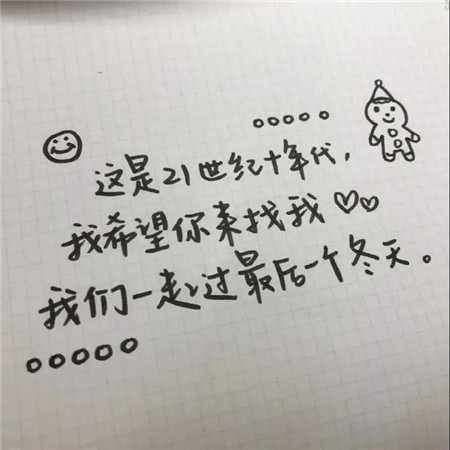 这是21世纪十年代，
我希望你来找我♡♡
我们一起过最后一个冬天。